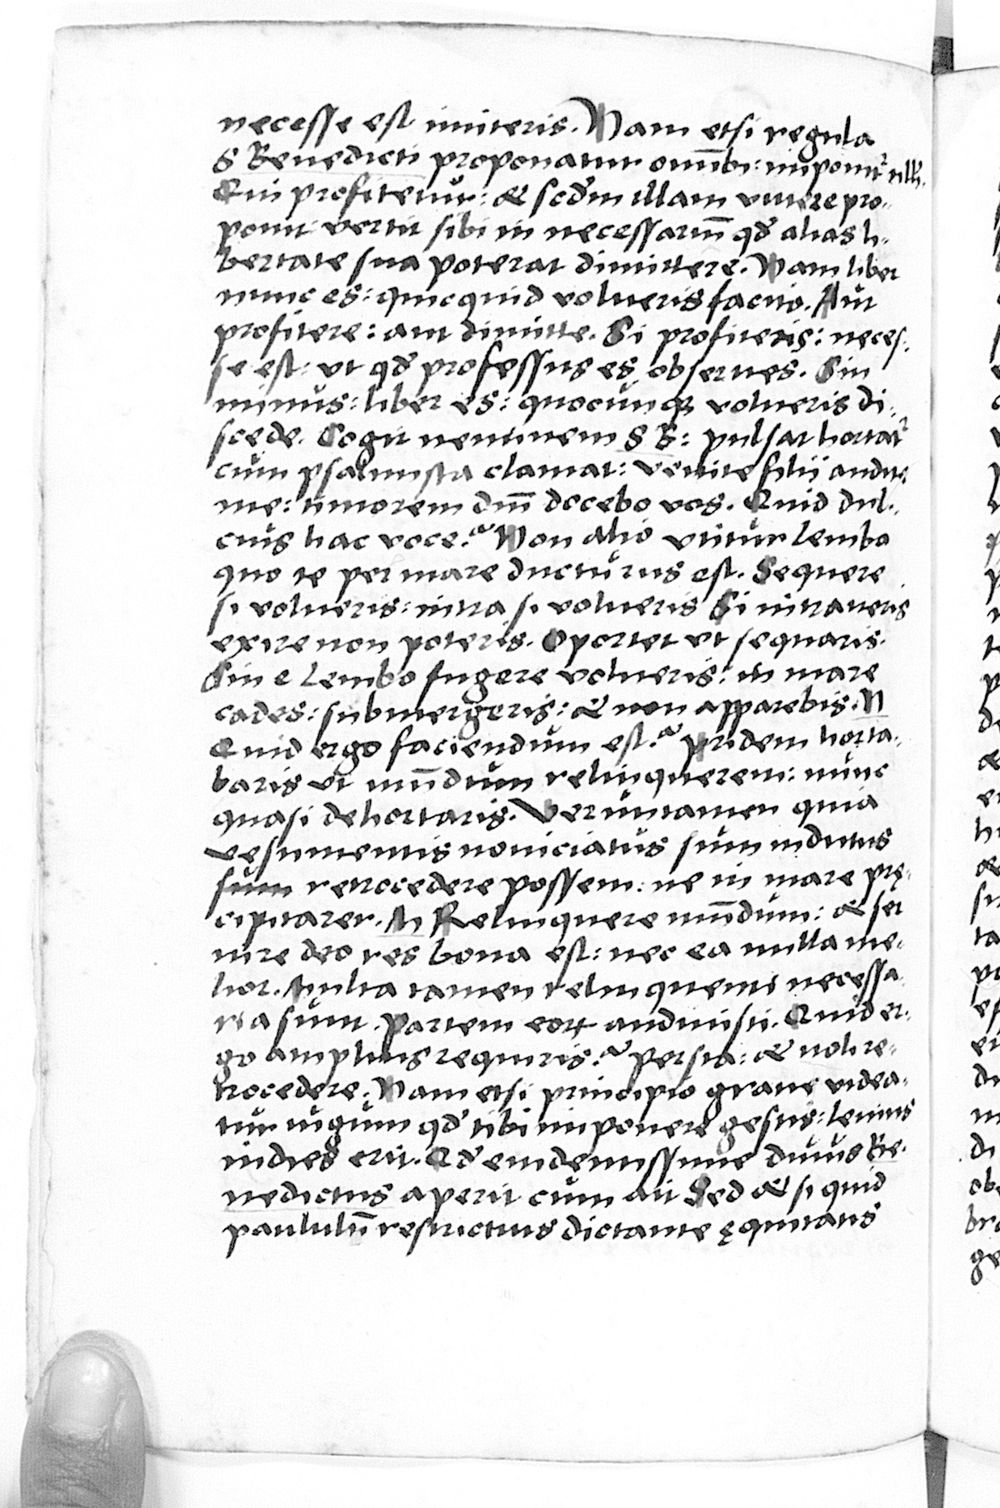 necesse est imiteris. Nam etsi regula
S Benedicti proponatur om̅ibꝫ: imponitᷣ illis
Qui profitetur: & scd̕m illam viuere pro-
ponit vertit sibi in necessariu̅ qd̕ alias li-
bertate sua poterat dimittere. Nam liber
nunc es: quicquid volueris facito. Aut
profitere: aut dimitte. Si profiteris: neces-
se est: vt qd̕ professus es obserues. Sin
minus: liber es: quocunqꝫ volueris di-
scede. Cogit neminem S B: pulsat hortatᷣ
cum psalmista clamat: venite filii audite
me: timorem dn̅i docebo vos. Quid dul-
cius hac voce? Non alio vtitur lembo
quo te per mare ducturus est. Sequere
si volueris: intra si volueris Si intraueris
exire non poteris. Oportet vt sequaris.
Sin e Lembo fugere volueris: in mare
cades: submergeris: & non apparebis. N
Quid ergo faciendum est? Pridem horta-
baris vt mu̅dum relinquerem: nunc
quasi dehortaris. Veruntamen quia
vestimentis nouiciatus sum indutus
sum retrocedere possem: ne in mare prę-
cipitarer. M Relinquere mu̅dum: & ser
uire deo res bona est: nec ea nulla me-
lior. Multa tamen relinquenti necessa-
ria sunt. Partem eoꝝ audiuisti. Quid er-
go amplius requiris? Persta: & noli re-
trocedere. Nam etsi principio graue videa-
tur iugum qd̕ tibi imponere gestis: leuius
indies erit. Qd̕ euidentissime diuus Be-
nedictus aperit cum ait Sed & si quid
paululu̅ restrictius dictante ęquitatis